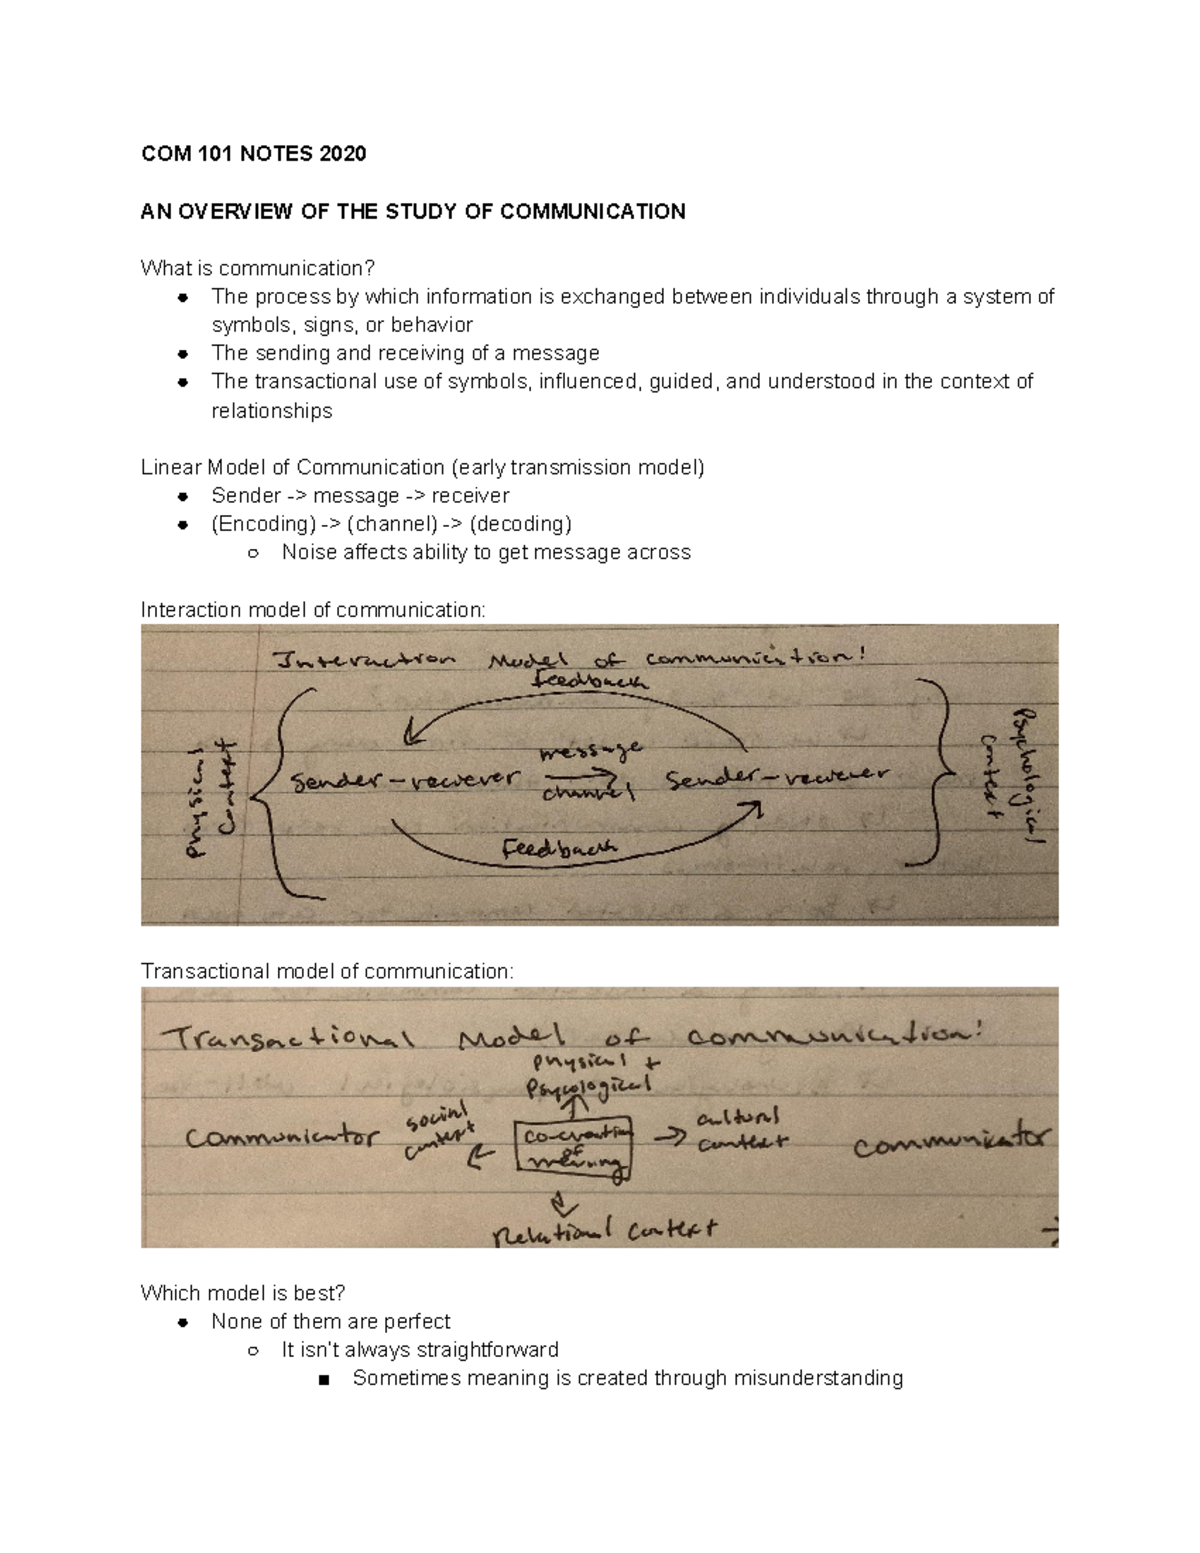 COM 101 NOTES 2020
AN OVERVIEW OF THE STUDY OF COMMUNICATION
What is communication?
● The process by which information is exchanged between individuals through a system of
symbols, signs, or behavior
● The sending and receiving of a message
● The transactional use of symbols, influenced, guided, and understood in the context of
relationships
Linear Model of Communication (early transmission model)
● Sender -> message -> receiver
● (Encoding) -> (channel) -> (decoding)
○ Noise affects ability to get message across
Interaction model of communication:
Interaction Model of communication!
Feedback
Physical
Context
Sender-reciever
message
channel
Sender-reciever
Feedback
Psychological
Context
Transactional model of communication:
Transactional Model of communication!
Physical +
Psycological
Communicator
social
context
co-creation
of
meaning
cultural
context
communicator
Relational context
Which model is best?
● None of them are perfect
○ It isn't always straightforward
■ Sometimes meaning is created through misunderstanding